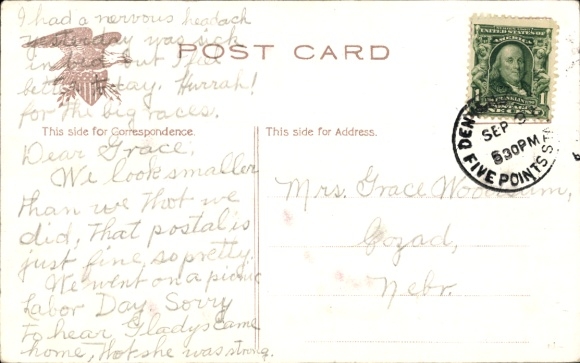 I had a nervous headach
yesterday was sick
in bed but feel
better today. Hurrah!
for the big races.
POST CARD
UNITED STATES OF
AMERICA
FRANKLIN
1 1
POSTAGE
ONE CENT
SEP
630PM
FIVE POINTS STA
This side for Correspondence.
This side for Address.
Dear Grace;
We look smaller
than we thot we
did, that postal is
just fine, so pretty.
We went on a picnic
Labor Day. Sorry
to hear Gladys came
home, thot she was strong.
Mrs. Grace
Cozad,
Nebr.